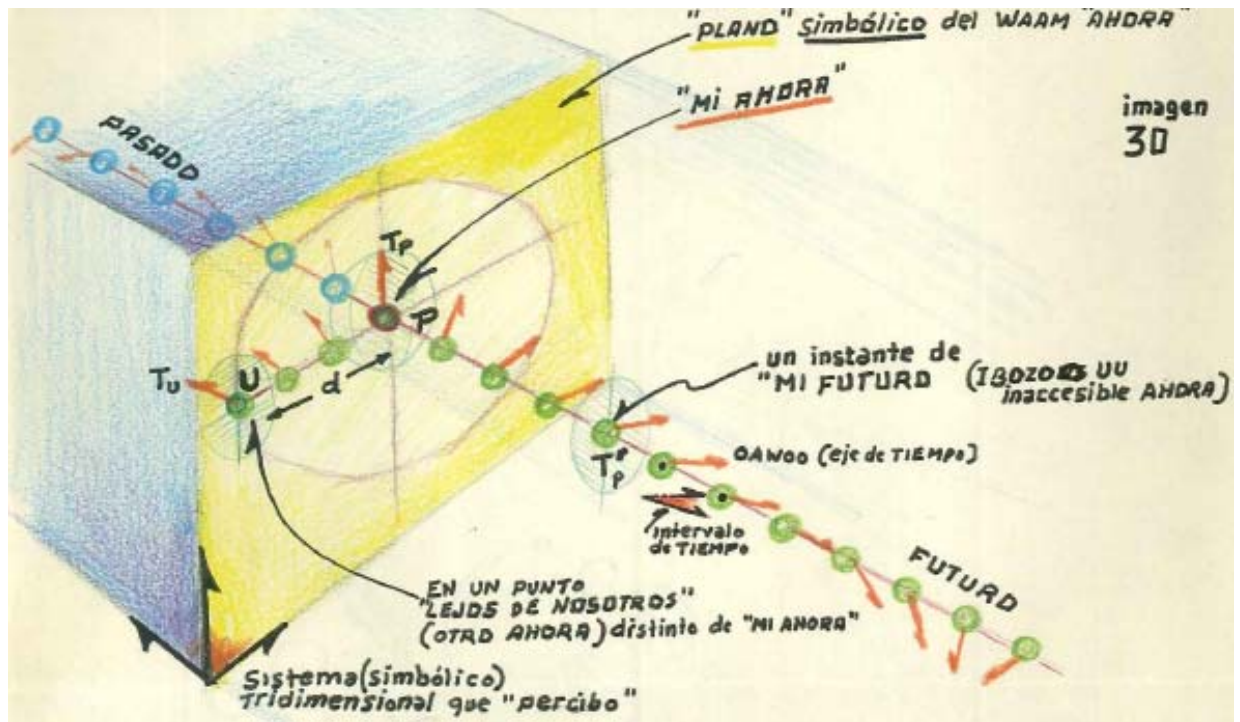 "PLANO" Simbólico del WAAM "AHORA"
"MI AHORA"
imagen
30
PASADO
Tp
P
Tu
U
d
un instante de
"MI FUTURO (IBOZOO UU
inaccesible AHORA)
Tp"
OAWOO (eje de TIEMPO)
intervalo
de TIEMPO
FUTURO
EN UN PUNTO
"LEJOS DE NOSOTROS"
(OTRO AHORA) distinto de "MI AHORA"
Sistema (simbólico)
Tridimensional que "percibo"